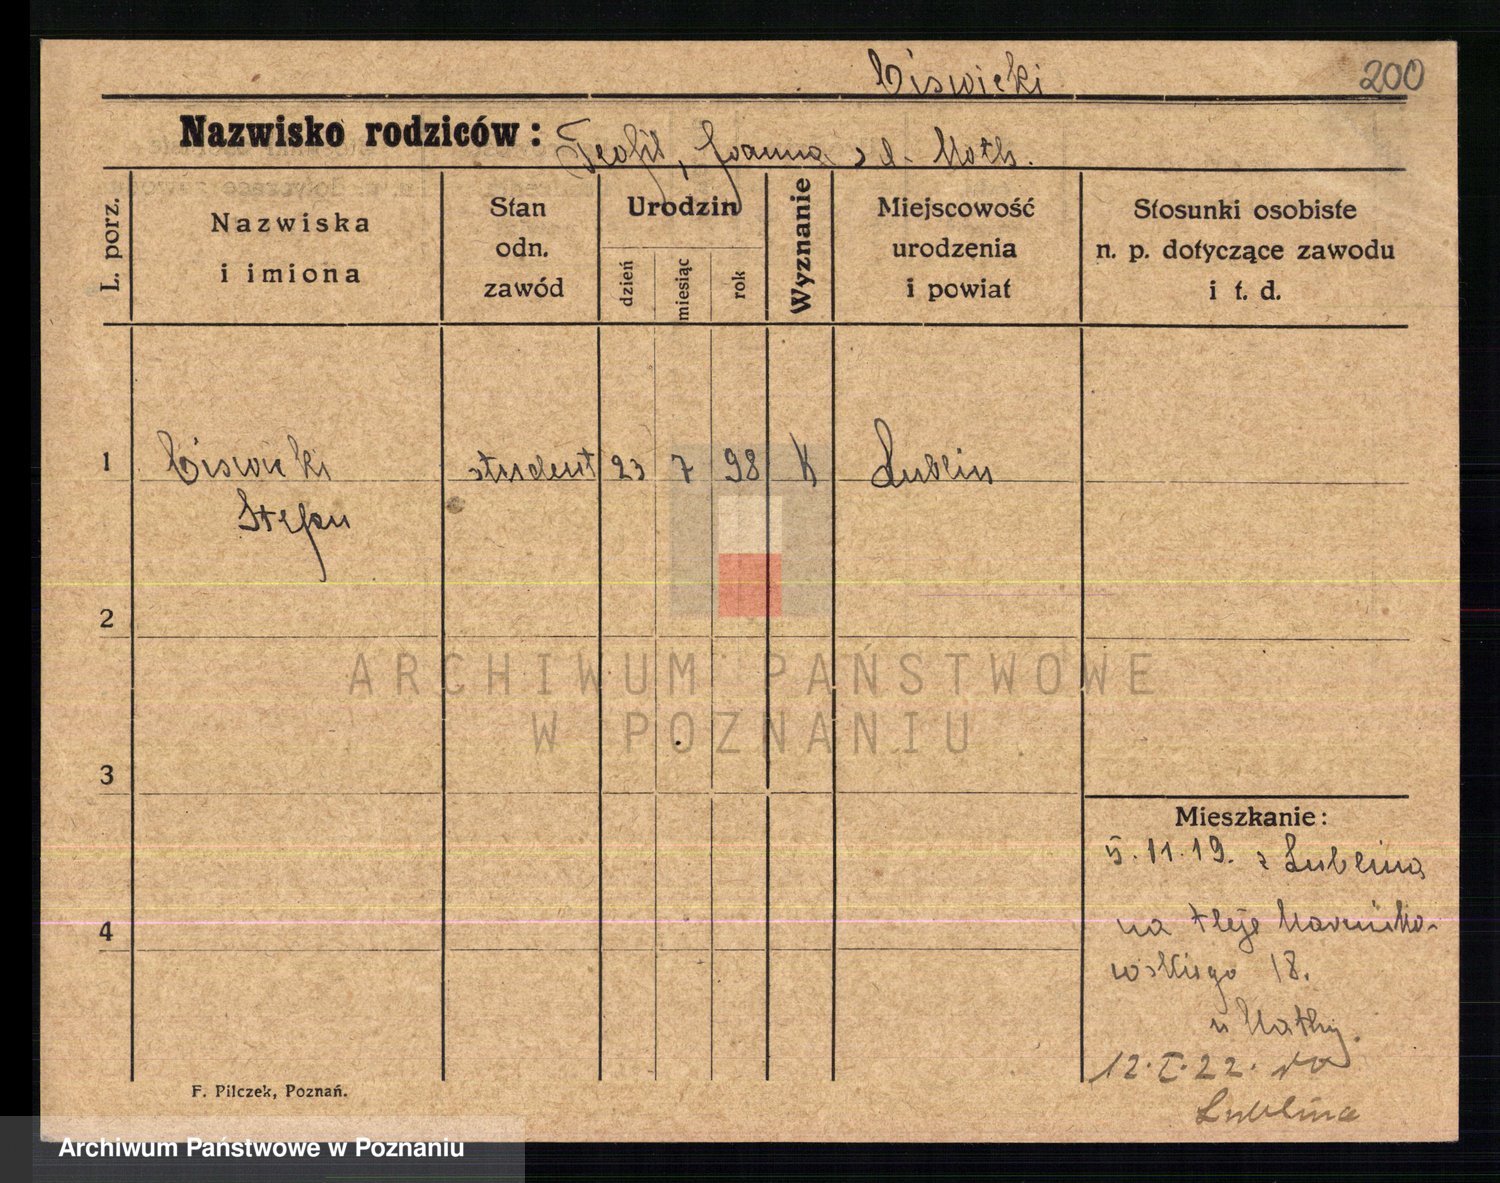 Ciswicki
200
Nazwisko rodziców: Teofil, Joanna z d. Moth.
L. porz.
Nazwiska
i imiona
Stan
odn.
zawód
Urodzin
dzień
miesiąc
rok
Wyznanie
Miejscowość
urodzenia
i powiat
Stosunki osobiste
n. p. dotyczące zawodu
i t. d.
1 Ciswicki student 23 7 98 K Lublin
Stefan
2
3
4
Mieszkanie:
5.11.19. z Lublina
na Aleje Marcinko-
wskiego 18.
u
12.I.22. do
Lublina
F. Pilczek, Poznań.
ARCHIWUM PAŃSTWOWE
W POZNANIU
Archiwum Państwowe w Poznaniu